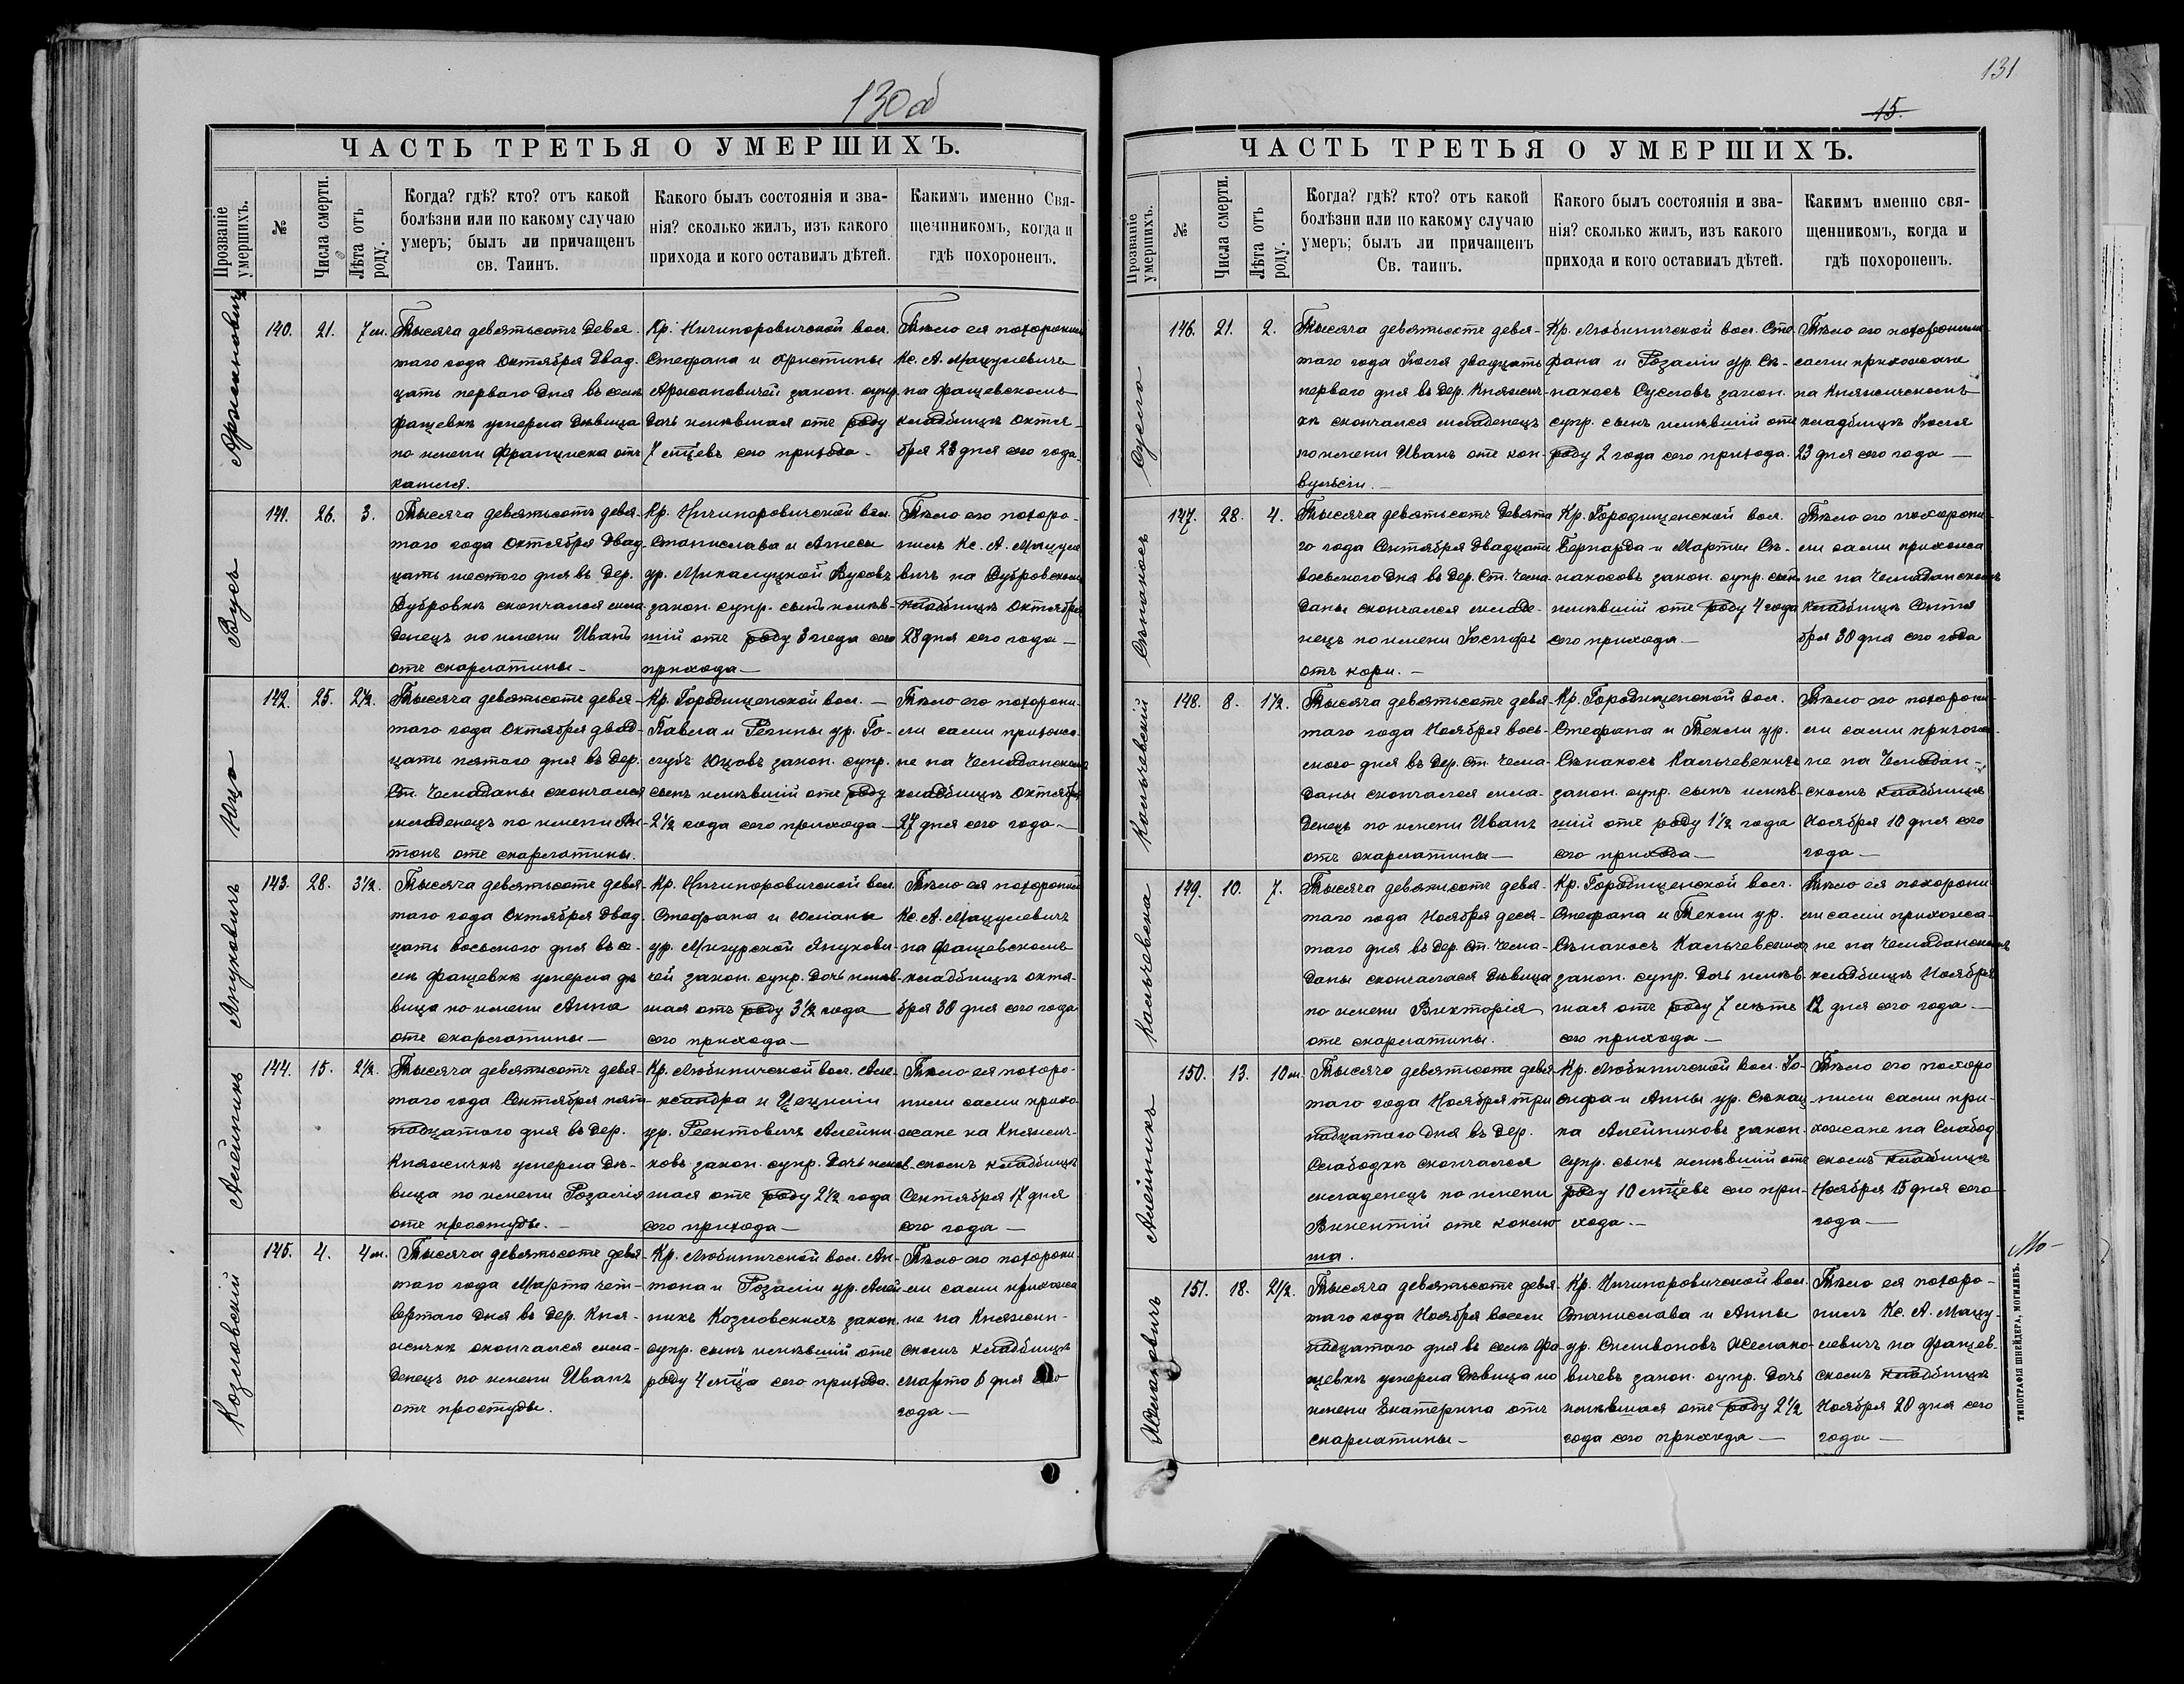 130об
ЧАСТЬ ТРЕТЬЯ О УМЕРШИХЪ.
Прозваніе умершихъ.
№
Числа смерти.
Лѣта отъ роду.
Когда? гдѣ? кто? отъ какой
болѣзни или по какому случаю
умеръ; былъ ли причащенъ
св. Таинъ.
Какого былъ состоянія и зва-
нія? сколько жилъ, изъ какого
прихода и кого оставилъ дѣтей.
Какимъ именно Свя-
щенникомъ, когда и
гдѣ похороненъ.
Аржановичъ
140. 21. 7 м.
Тысяча девятьсотъ девя-
таго года Октября двад-
цать перваго дня въ селѣ
Фащевкѣ умерла дѣвица
по имени Франциска отъ
кашля.
Кр. Ничипоровичской вол.
Стефана и Христины
Аржановичей закон. супр.
дочь имѣвшая отъ роду
7 мѣсцевъ сего прихода.
Тѣло ея похоронилъ
Кс. А. Мацулевичъ
на Фащевскомъ
кладбищѣ Октя-
бря 23 дня сего года
Вусъ
141. 26. 3.
Тысяча девятьсотъ девя-
таго года Октября двад-
цать шестого дня въ дер.
Дубровкѣ скончался мла-
денецъ по имени Иванъ
отъ скарлатины-
Кр. Ничипоровичской вол.
Станислава и Агнесы
ур. Микалуцкой Вусовъ
закон. супр. сынъ имѣв-
шій отъ роду 3 года сего
прихода-
Тѣло его похоро-
нилъ Кс. А. Мацуле
вичъ на Дубровскомъ
кладбищѣ Октября
28 дня сего года-
Юцо
142. 25. 2½.
Тысяча девятьсотъ девя-
таго года Октября двад-
цать пятаго дня въ дер.
Ст. Чемаданы скончался
младенецъ по имени Ан-
тонъ отъ скарлатины.
Кр. Городищенской вол.-
Павла и Регины ур. Го-
лубъ Юцовъ закон. супр.
сынъ имѣвшій отъ роду
2½ года сего прихода-
Тѣло его похорони-
ли сами прихожа-
не на Чемаданскомъ
кладбищѣ Октября
27 дня сего года-
Януковичъ
143. 28. 3½.
Тысяча девятьсотъ девя-
таго года Октября двад-
цать восьмого дня въ се-
лѣ Фащевкѣ умерла дѣ
вица по имени Анна
отъ скарлатины-
Кр. Ничипоровичской вол.
Стефана и Юліаны
ур. Мигурской Янукови-
чей закон. супр. дочь имѣв-
шая отъ роду 3½ года
сего прихода-
Тѣло ея похоронилъ
Кс. А. Мацулевичъ
на Фащевскомъ
кладбищѣ Октя-
бря 30 дня сего года
Алейникъ
144. 15. 2½.
Тысяча девятьсотъ девя-
таго года Сентября пят-
надцатаго дня въ дер.
Княжичкѣ умерла дѣ-
вица по имени Розалія
отъ простуды.-
Кр. Любиничской вол. Але-
ксандра и Цециліи
ур. Реентовичъ Алейни-
ковъ закон. супр. дочь имѣв-
шая отъ роду 2½ года
сего прихода-
Тѣло ея похоро-
нили сами прихо-
жане на Княжич-
скомъ кладбищѣ
Сентября 17 дня
сего года-
Козловскій
145. 4. 4 м.
Тысяча девятьсотъ девя-
таго года Марта чет-
вертаго дня въ дер. Кня-
жичкѣ скончался мла-
денецъ по имени Иванъ
отъ простуды.
Кр. Любиничской вол. Ан-
тона и Розаліи ур. Алей-
никъ Козловскихъ закон.
супр. сынъ имѣвшій отъ
роду 4 мѣсца сего прихода.
Тѣло его похорони-
ли сами прихожа
не на Княжич-
скомъ кладбищѣ
Марта 6 дня сего
года-
131
15.
ЧАСТЬ ТРЕТЬЯ О УМЕРШИХЪ.
Прозваніе умершихъ.
№
Числа смерти.
Лѣта отъ роду.
Когда? гдѣ? кто? отъ какой
болѣзни или по какому случаю
умеръ; былъ ли причащенъ
Св. таинъ.
Какого былъ состоянія и зва-
нія? сколько жилъ, изъ какого
прихода и кого оставилъ дѣтей.
Какимъ именно свя-
щенникомъ, когда и
гдѣ похороненъ.
Сусло
146. 21. 2.
Тысяча девятьсотъ девя-
таго года Іюля двадцать
перваго дня въ дер. Княжич-
кѣ скончался младенецъ
по имени Иванъ отъ кон-
вульсіи.-
Кр. Любиничской вол. Сте-
фана и Розаліи ур. Сѣ-
накосъ Сусловъ закон.
супр. сынъ имѣвшій отъ
роду 2 года сего прихода.
Тѣло его похоронили
сами прихожане
на Княжичскомъ
кладбищѣ Іюля
23 дня сего года-
Сѣнакосъ
147. 28. 4.
Тысяча девятьсотъ девята
го года Сентября двадцать
восьмого дня въ дер. Ст. Чема-
даны скончался младе-
нецъ по имени Іосифъ
отъ кори.-
Кр. Городищенской вол.
Бернарда и Марты Сѣ-
накосовъ закон. супр. сынъ
имѣвшій отъ роду 4 года
сего прихода-
Тѣло его похорони-
ли сами прихожа
не на Чемаданскомъ
кладбищѣ Сентя
бря 30 дня сего года
Кальчевскій
148. 8. 1½.
Тысяча девятьсотъ девя-
таго года Ноября вось-
мого дня въ дер. Ст. Чема-
даны скончался мла-
денецъ по имени Иванъ
отъ скарлатины-
Кр. Городищенской вол.
Стефана и Теклы ур.
Сѣнакосъ Кальчевскихъ
закон. супр. сынъ имѣв-
шій отъ роду 1½ года
сего прихода-
Тѣло его похорони-
ли сами прихожа-
не на Чемадан-
скомъ кладбищѣ
Ноября 10 дня сего
года-
Кальчевска
149. 10. 7.
Тысяча девятьсотъ девя-
таго года Ноября деся-
таго дня въ дер. Ст. Чема-
даны скончалася дѣвица
по имени Викторія
отъ скарлатины.
Кр. Городищенской вол.
Стефана и Теклы ур.
Сѣнакосъ Кальчевскихъ
закон. супр. дочь имѣв-
шая отъ роду 7 лѣтъ
сего прихода-
Тѣло ея похорони-
ли сами прихожа-
не на Чемаданскомъ
кладбищѣ Ноября
12 дня сего года-
Алейникъ
150. 13. 10 м.
Тысяча девятьсотъ девя-
таго года Ноября три
надцатаго дня въ дер.
Слабодкѣ скончался
младенецъ по имени
Викентій отъ коклю
ша.
Кр. Любиничской вол. Іо-
сифа и Анны ур.
ка Алейниковъ закон.
супр. сынъ имѣвшій отъ
роду 10 мѣсцевъ сего при-
хода.-
Тѣло его похоро
нили сами при-
хожане на Слабод
скомъ кладбищѣ
Ноября 15 дня сего
года-
151. 18. 2½.
Тысяча девятьсотъ девя-
таго года Ноября восем
надцатаго дня въ селѣ Фа-
щевкѣ умерла дѣвица по
имени Екатерина отъ
скарлатины-
Кр. Ничипоровичской вол.
Станислава и Анны
ур. Силивоновъ Жемано-
вичевъ закон. супр. дочь
имѣвшая отъ роду 2½
года сего прихода-
Тѣло ея похоро-
нилъ Кс. А. Мацу-
левичъ на Фащев-
скомъ кладбищѣ
Ноября 20 дня сего
года-
ТИПОГРАФІЯ ШНЕЙДЕРА, МОГИЛЕВЪ.